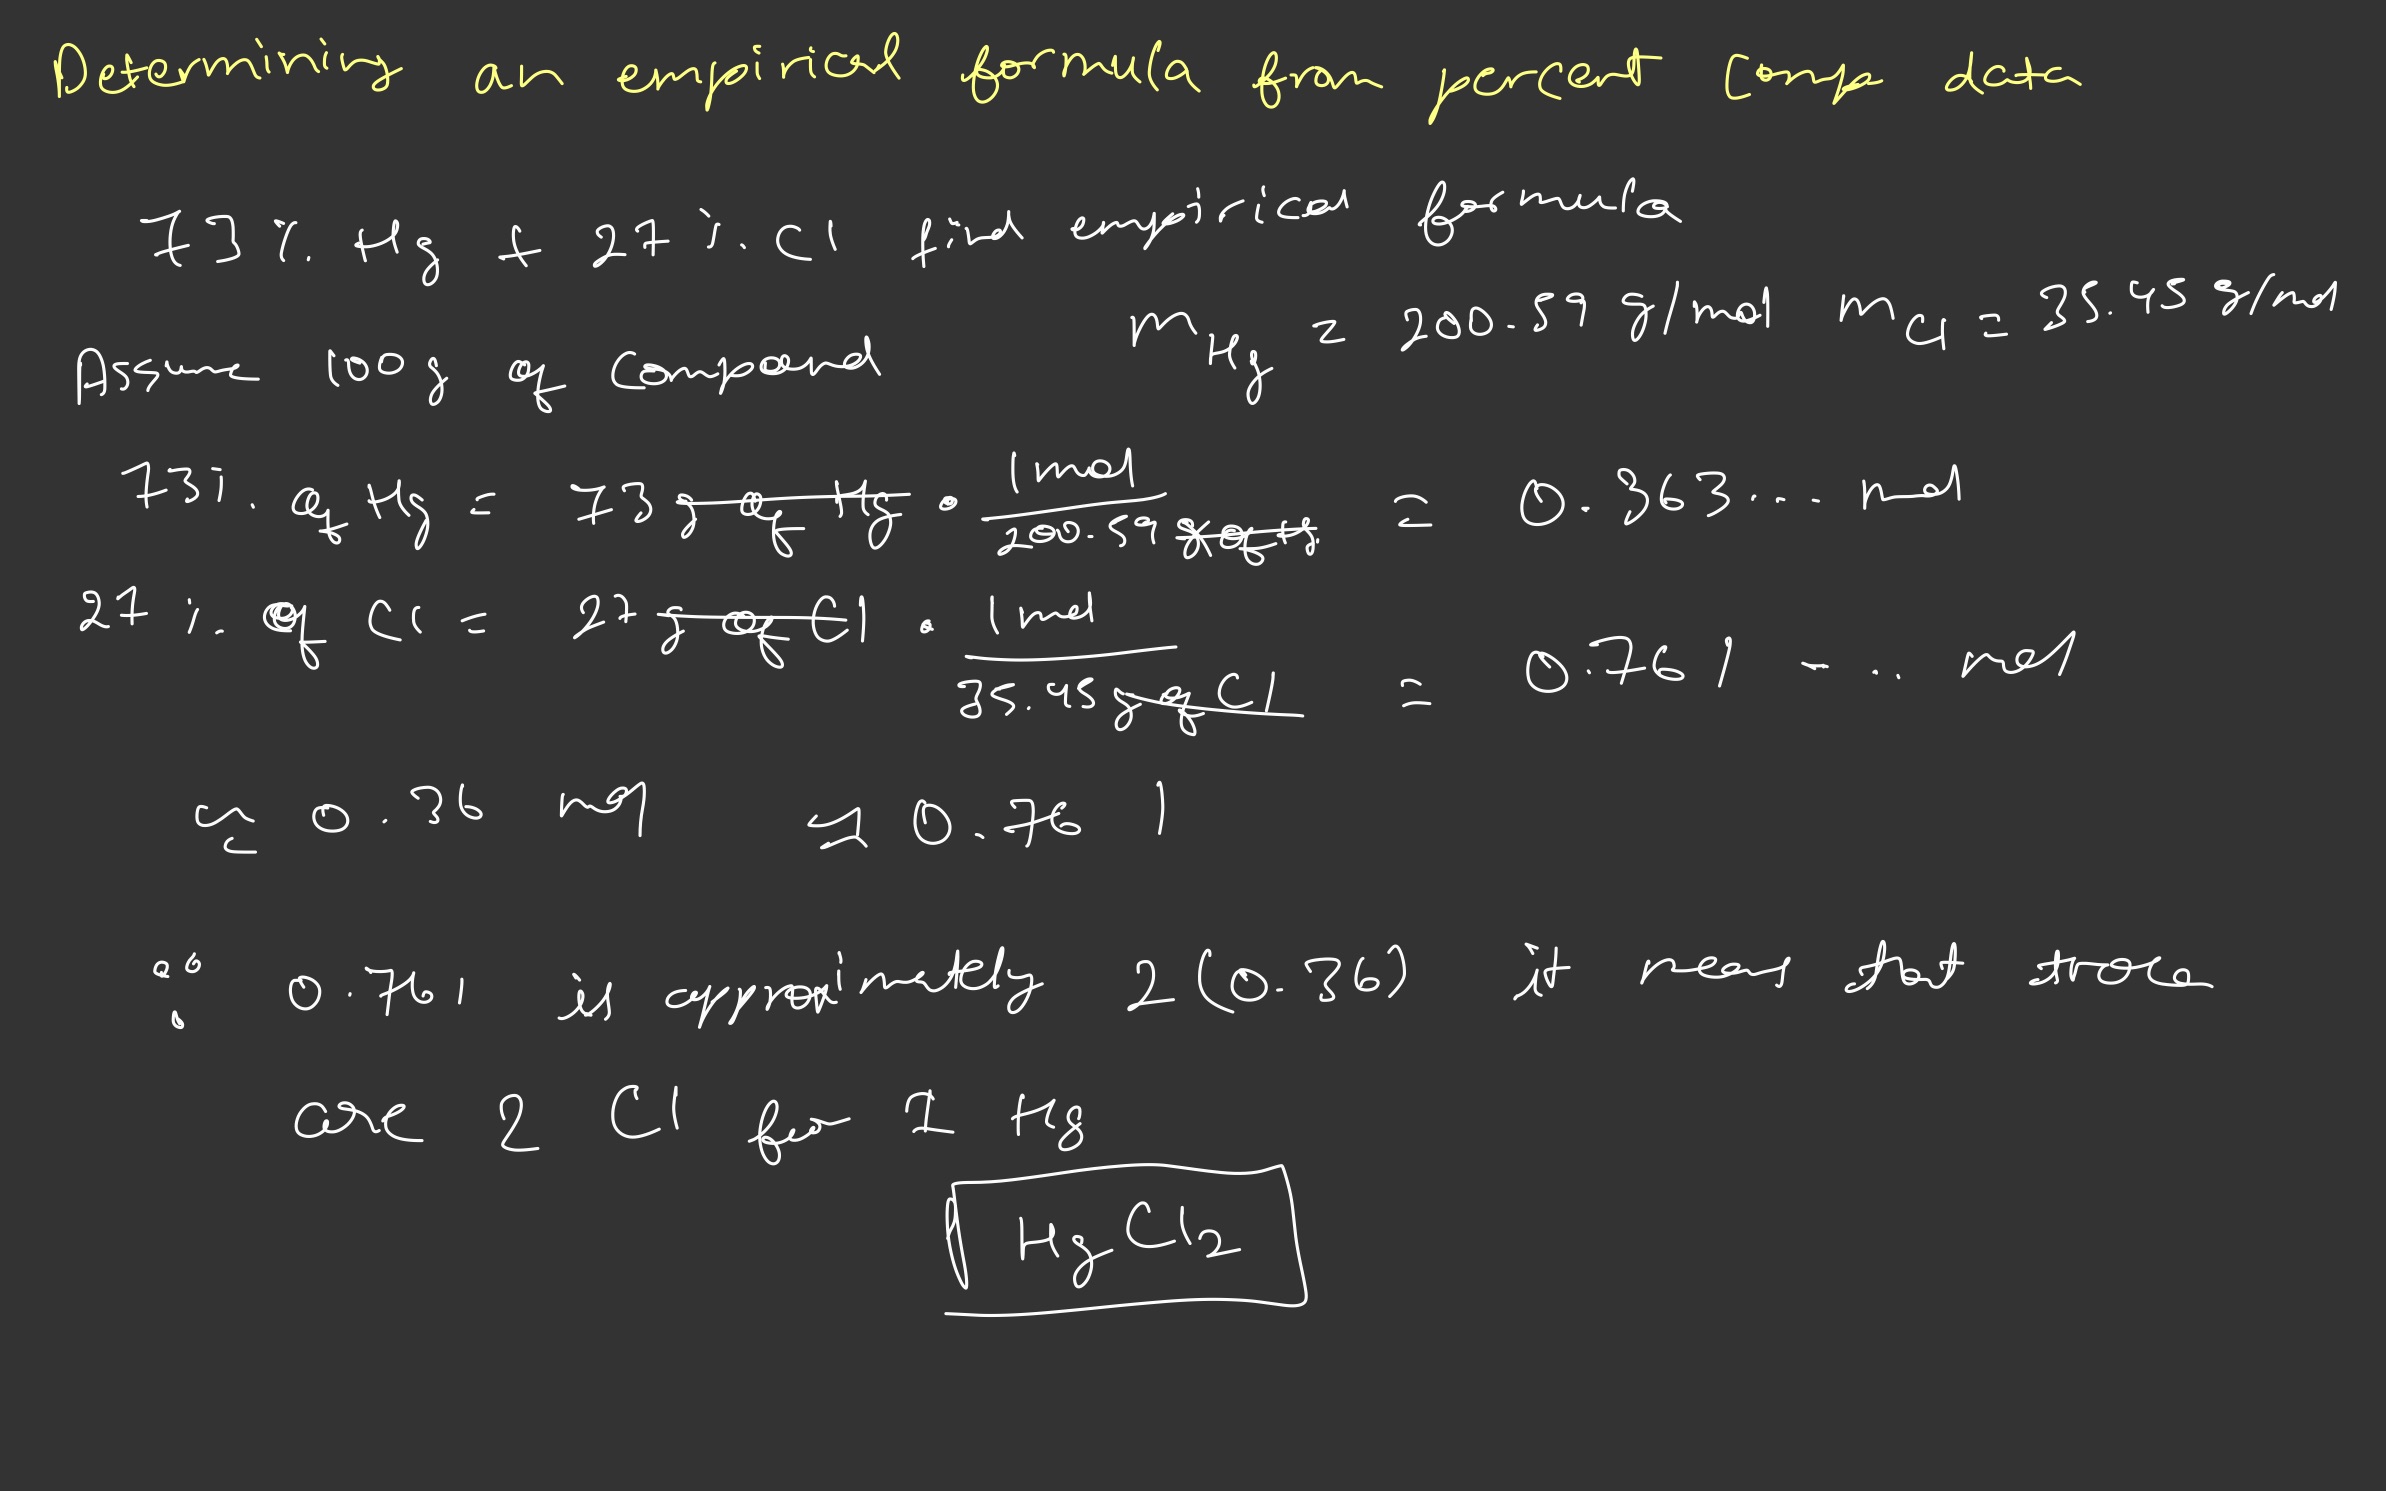 Determining an empirical formula from percent comp data
73 %. Hg + 27 %. Cl find empirical formula
Assume 100g of Compound
m Hg = 200.59 g/mol m Cl = 35.45 g/mol
73%. of Hg = 73 g of Hg . 1 mol / 200.59 g of Hg = 0.363... mol
27 %. of Cl = 27 g of Cl . 1 mol / 35.45 g of Cl = 0.761 -.. mol
≈ 0.36 mol ≈ 0.761
∵ 0.761 is approximately 2(0.36) it means that
are 2 Cl for 1 Hg
HgCl₂